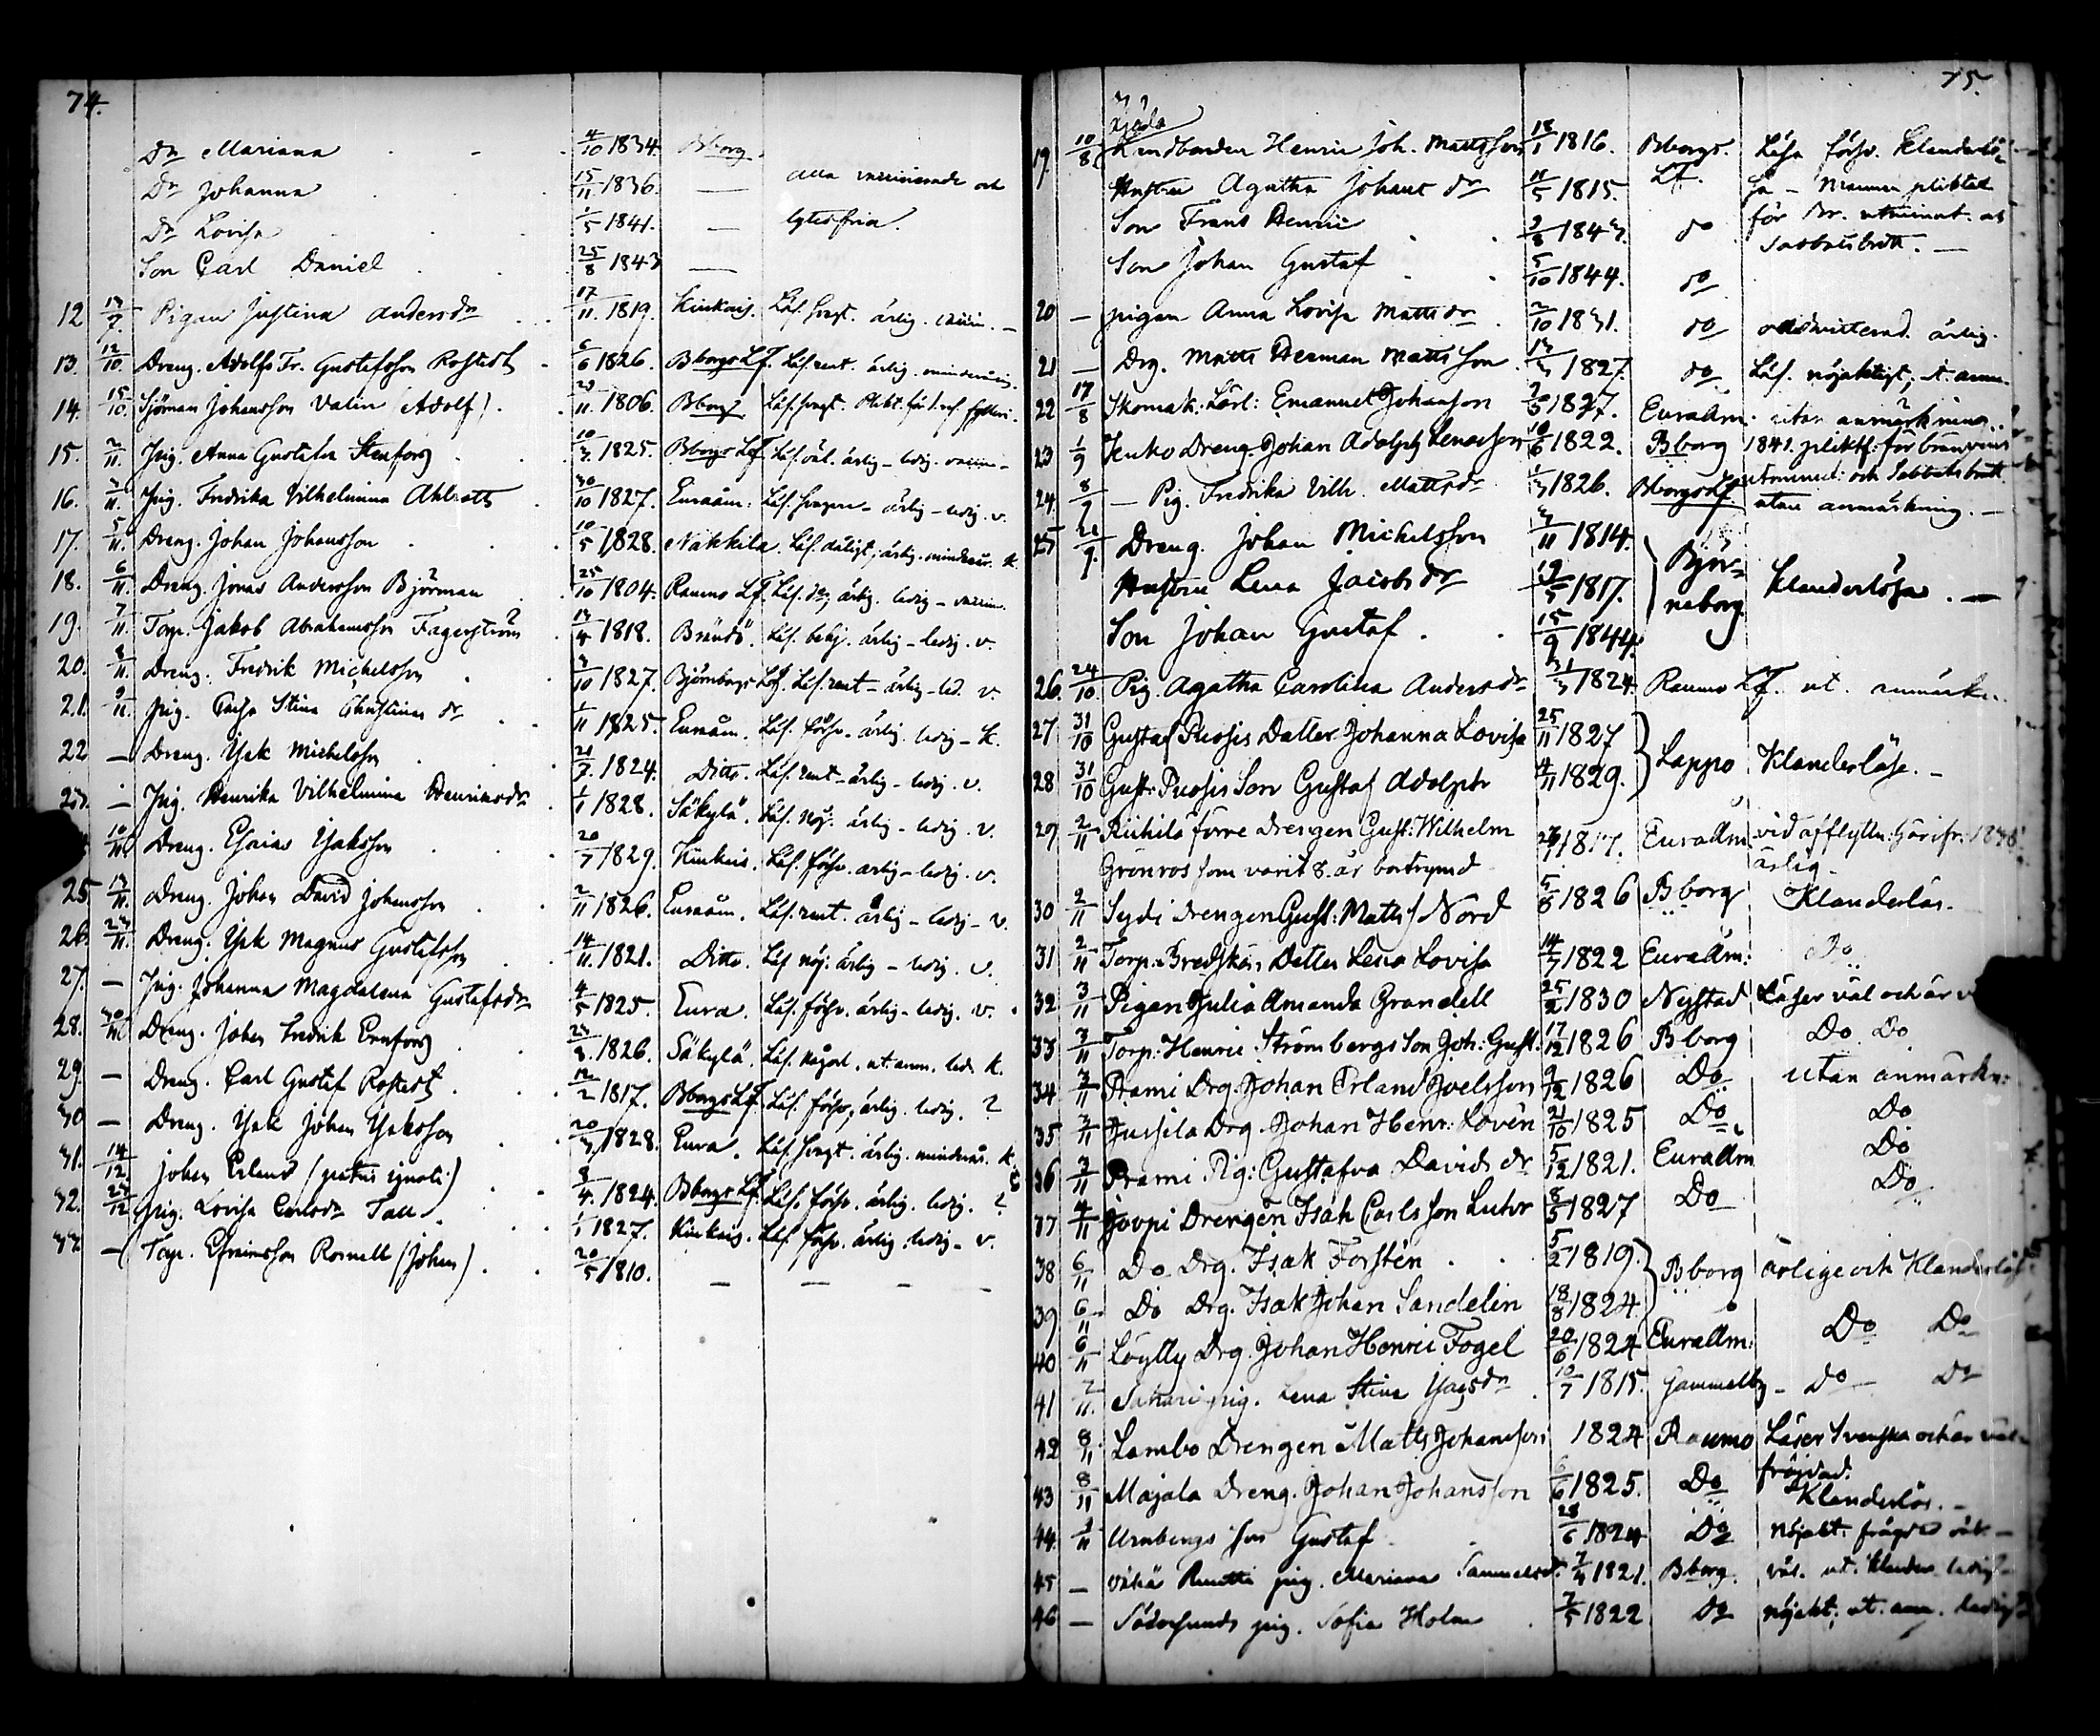 74.
Dr Mariana 4/10 1834. Bborg.
Dr Johanna 15/11 1836. — alla vaccinerade och
Dr Lovisa 1/5 1841. — lytesfria.
Son Carl Daniel 25/8 1843 —
12 13/7 Pigan Justina Andersdr 17/11 1819. Kiukais. Läs. svagt. ärlig. vaccin. —
13. 12/10 Dreng. Adolf Fr. Gustafsson Rostedt 6/6 1826. Bborgs Lf. Läs. rent. ärlig.
14. 15/10 Sjöman Johansson Valin (Adolf) 23/11 1806. Bborg Läs. svagt. Plikt. för
15. 2/11 Pig. Anna Gustafva Stenfors 10/3 1825. Bborgs Lf. Läs. väl. ärlig – ledig.
16. 3/11 Pig. Fredrika Vilhelmina Ahlrooth 30/10 1827. Euraåm. Läs. ärlig – ledig. v.
17. 5/11 Dreng. Johan Johansson 10/5 1828. Nakkila. Läs. dåligt, ärlig. minderår. k.
18. 6/11 Dreng. Jonas Andersson Björman 25/10 1804. Raumo Lf. Läs. do, ärlig. ledig – vaccin.
19. 7/11 Torp. Jakob Abrahamsson Fagerström 13/4 1818. Brändö. Läs. ärlig – ledig. v.
20. 8/11 Dreng. Fredrik Michelsson 3/10 1827. Björnborgs Lf. Läs. rent – ärlig – led. v.
21. 9/11 Pig. Caisa Stina Christinas dr 1/11 1825. Euraåm. Läs. försv. ärlig. ledig – k.
22 — Dreng. Isak Michelsson 21/7 1824. Ditto. Läs. rent – ärlig – ledig. v.
23. — Pig. Henrika Vilhelmina Henriksdr 1/1 1828. Säkylä. Läs. nöj. ärlig – ledig. v.
10/11 Dreng. Esaias Isaksson 20/7 1829. Kiukais. Läs. försv. ärlig – ledig. v.
25 13/11 Dreng. Johan David Johansson 2/11 1826. Euraåm. Läs. rent. ärlig – ledig – v.
26. 23/11 Dreng. Isak Magnus Gustafsson 14/11 1821. Ditto. Läs. nöj. ärlig – ledig. v.
27. — Pig. Johanna Magdalena Gustafsdr 4/5 1825. Eura. Läs. försv. ärlig – ledig. v.
28. 30/11 Dreng. Johan Fredrik Ernfors 23/3 1826. Säkylä. Läs. något. ut. anm. led. k.
29. — Dreng. Carl Gustaf Rostedt 12/2 1817. Bborgs Lf. Läs. försv, ärlig. ledig. ?
30 — Dreng. Isak Johan Isaksson 20/3 1828. Eura. Läs. svagt. ärlig. minderår. k.
31. 14/12 Johan Erland (patris ignoti) 8/4 1824. Bborgs Lf. Läs. försv. ärlig. ledig. ?
32. 23/12 Pig. Lovisa Carlsdr Tall 1/1 1827. Kiukais. Läs. försv. ärlig. ledig – v.
33 — Torp. Efraimsson Romell (Johan) 20/5 1810. — — — —
75.
19. 10/8 Landbonden Henric Joh. Mattsson 18/1 1816. Bborgs Läsa försv. Klanderlö-
Hustru Agatha Johans dr 11/5 1815. Lf. sa – Mannen pliktat
Son Frans Henric 3/8 1843. do för Br. utminut. o.
Son Johan Gustaf 5/10 1844. do Sabbatsbrott. —
20 — pigan Anna Lovisa Matts dr 2/10 1831. do oadmitterad. ärlig.
21 — Drg. Matts Herman Mattsson 13/3 1827. do Läs. nöjaktigt, ut. anm.
22 17/8 Skomak: Lärl: Emanuel Johansson 2/5 1827. Euraåm. utan anmärkning.
23 1/9 Dreng. Johan Adolph 10/6 1822. Bborg 1841. pliktf. för bränvins
24. 8/9 — Pig. Fredrika Vilh. Mattsdr 1/3 1826. Bborgs Lf utminut: och Sabbatsbrott utan anmärkning. —
25 22/9 Dreng. Johan Michelsson 3/11 1814.
Hustru Lena Jacobs dr 19/5 1817. Björ-neborg Klanderlösa. —
Son Johan Gustaf 15/9 1844.
26. 24/10 Pig. Agatha Carolina Andersdr 31/3 1824. Raumo Lf. ut. anmärkn.
27 31/10 Gustaf Puosis Dotter Johanna Lovisa 25/11 1827
28 31/10 Gust: Puosis Son Gustaf Adolph 4/11 1829. Lappo Klanderlösa. —
29 2/11 Riihilä förre Drengen Gust: Wilhelm Euraåm vid afflyttn: härifr: 1838
Grönros som varit 8. år bortrymd ärlig.
30 2/11 Seydi Drengen Gust: Matts: Nord 5/8 1826 Bborg Klanderlös.
31 2/11 Torp. Bredskärs Dotter Lena Lovisa 14/7 1822 Euraåm: Do
32 3/11 Pigan Julia Amanda Grandell 25/2 1830 Nystad Läser väl och är v
33 3/11 Torp: Henric Strömbergs Son Joh: Gust: 17/12 1826 Bborg Do Do
34 3/11 Prami Drg. Johan Erland Joelsson 9/12 1826 Do utan anmärkn:
35 3/11 Jussila Drg. Johan Henr: Lovén 21/10 1825 Do Do
36 3/11 Prami Pig: Gustafva Davids dr 5/12 1821. Euraåm Do
37 4/11 Jovpi Drengen Isak Carlsson Luhr 8/5 1827 Do Do
38 6/11 Do Drg. Isak Forstén 5/2 1819. Bborg ärlige och Klanderlös
39 6/11 Do Drg. Isak Johan Sandelin 18/8 1824
40 6/11 Löytty Drg. Johan Henric Fogel 20/6 1824 Euraåm: Do Do
41 7/11 Sahari pig. Lena Stina Isacsdr 10/7 1815. Gammelby – do – do
42 8/11 Lambo Drengen Matts Johansson 1824 Raumo Läser Svenska och är väl
43 8/11 Majala Dreng. Johan Johansson 6/6 1825. Do fräjdad. Klanderlös. —
44. 9/11 son Gustaf 28/6 1824 Do nöjakt. frägd väl —
45 — pig. Mariana Samuelsdr. 7/4 1821. Bborg. väl. ut. klander ledig
46 — Södersunds pig. Sofia Holm 7/5 1822 do nöjakt, ut. anm. ledig